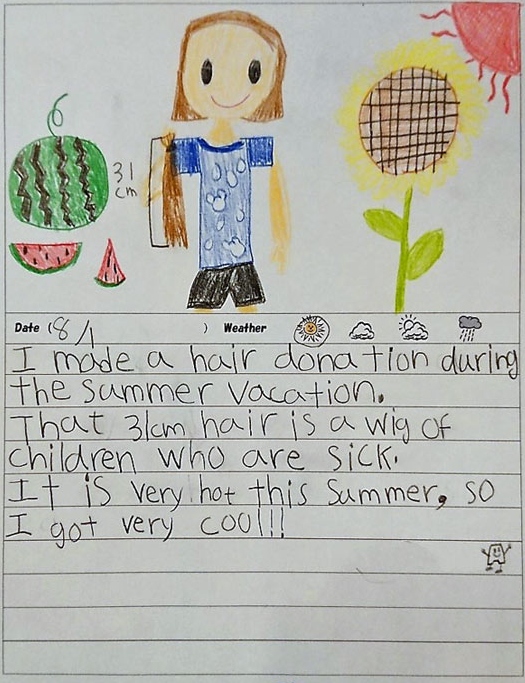 31
cm
Date (8/1 ) Weather
I made a hair donation during
the summer vacation.
That 31cm hair is a wig of
children who are sick.
It is very hot this summer, so
I got very cool!!!